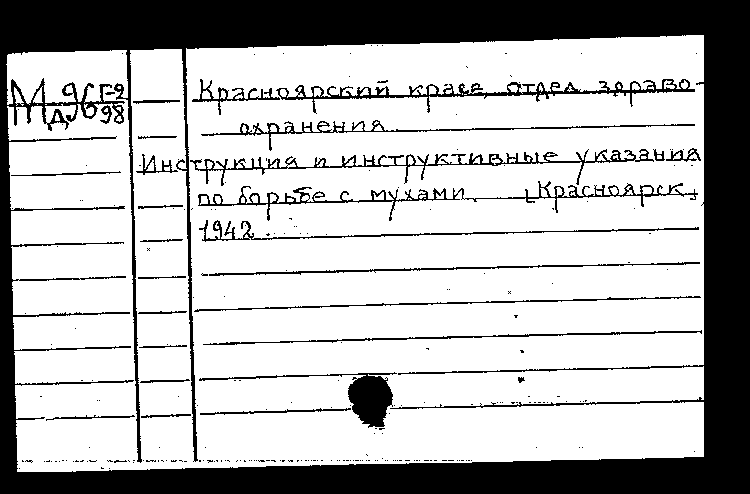 Мд96 Г-2
98
Красноярский краев. отдел здраво-
охранения
Инструкция и инструктивные указания
по борьбе с мухами. [Красноярск]
1942.